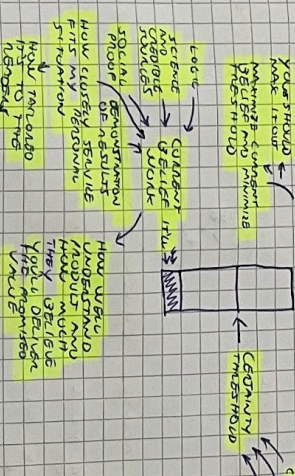 YOU SHOULD
MAX IT OUT
MAXIMIZE CURRENT
BELIEF AND MINIMIZE
THRESHOLD
LOGIC
SCIENCE
AND
CREDIBLE
SOURCES
SOCIAL
PROOF
DEMONSTRATION
OF RESULTS
HOW CLOSELY SERVICE
FITS MY
PERSONAL
SITUATION
HOW TAILORED
IT IS TO THE
CURRENT
BELIEF IT'LL
WORK
HOW WELL
UNDERSTAND
PRODUCT AND
HOW MUCH
THEY BELIEVE
YOU'LL DELIVER
THE PROMISED
VALUE
CERTAINTY
THRESHOLD